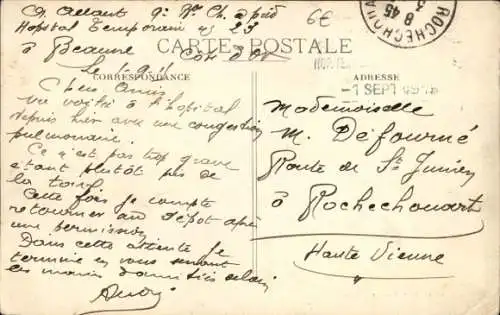 9e Rt Ch. à pied
Hopital Temporaire no 23
à Beaune Côte d'Or
6€
ROCHECHOUA
8 45
CARTE POSTALE
CORRESPONDANCE
ADRESSE
-1 SEPT
Le
Chers Amis
à l'hopital
depuis hier avec une congestion
pulmonaire.
Ce n'est pas trop grave
étant plutôt pas de
la
Cette fois je compte
retourner au Dépot après
une permission
Dans cette attente je
termine en vous serrant
les mains d'amitiés
Mademoiselle
M. Défourné
Route de St Junien
à Rochechouart
Haute Vienne